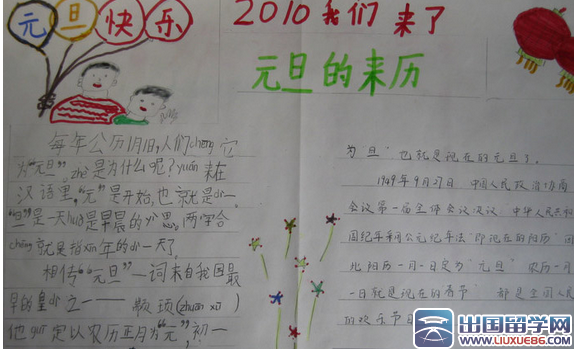 元旦快乐
2010我们来了
元旦的来历
每年公历1月1日,人们cheng它
为“元旦”。zhe是为什么呢?yuán来在
汉语里,“元”是开始,也就是di一。
“旦”是一天huò是早晨的yi思。两字合
chéng就是指xin年的di一天了。
相传“元旦”一词来自我国最
早的皇di之一——颛顼(zhuān xū)
他guī定以农历正月为“元”,初一
为旦”也就是现在的元旦了。
1949年9月27日 中国人民政治协商
会议第一届全体会议决议 中华人民共和
国纪年采用公元纪年法”即现在的阳历”因
此阳历一月一日定为“元旦” 农历一月
一日就是现在的春节” 都是全国人民
的欢乐节日
出国留学网
www.liuxue86.com